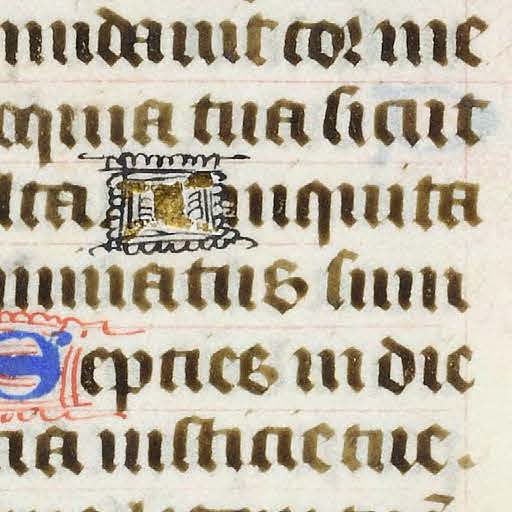 midauit cor me
oquia tua sicut
lta Iniquita
minatus sum
Septies in die
ia iusticie tue.